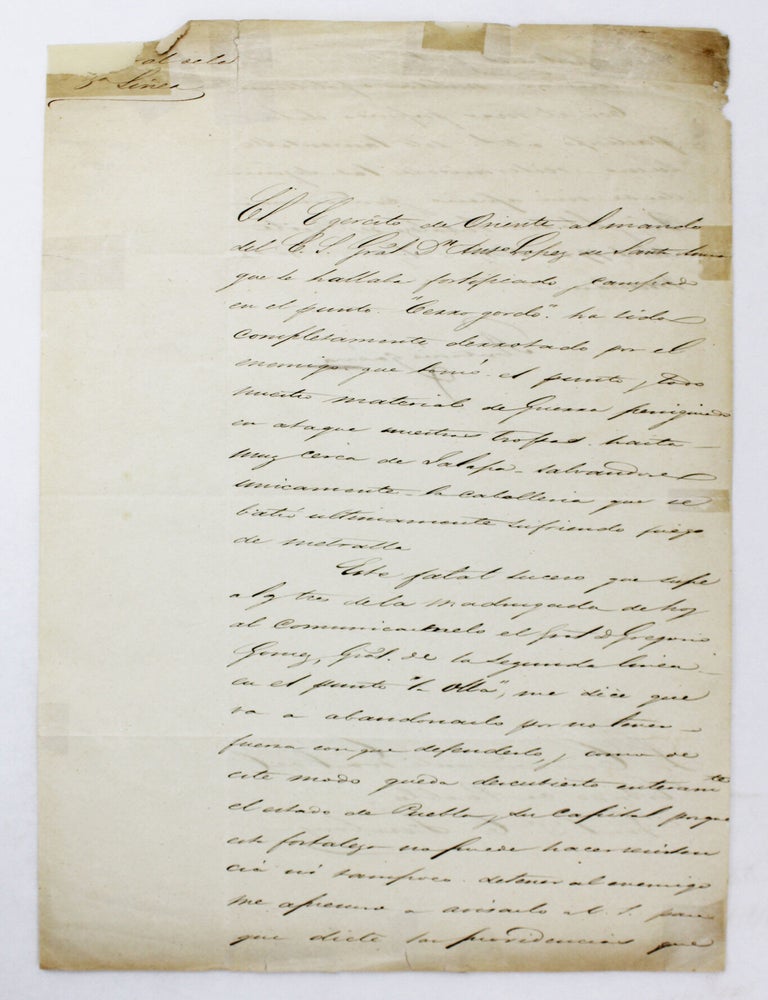 al de la
3a Linea
El Egercito de Oriente al mando
del E. S. Gral. Dn. Anto. Lopez de Santa Anna
que se hallaba fortificado y campado
en el punto "Cerro gordo" ha sido
completamente derrotado por el
enemigo que tomó el punto y todo
nuestro material de Guerra persiguiendo
en ataque nuestras tropas hasta
muy cerca de Jalapa salvandose
unicamente la caballeria que se
batió ultimamente sufriendo fuego
de metralla
Este fatal suceso que supe
a las tres de la madrugada de hoy
al comunicarmelo el Gral. D. Gregorio
Gomez, Gral. de la segunda linea
en el punto "la Olla", me dice que
va a abandonarlo por no tener
fuerza con que defenderlo, y como de
este modo queda descubierto enteramte
el estado de Puebla y su capital porque
esta fortaleza no puede hacer resisten
cia ni tampoco detener al enemigo
me apresuro a avisarlo a V. S. para
que dicte las providencias que